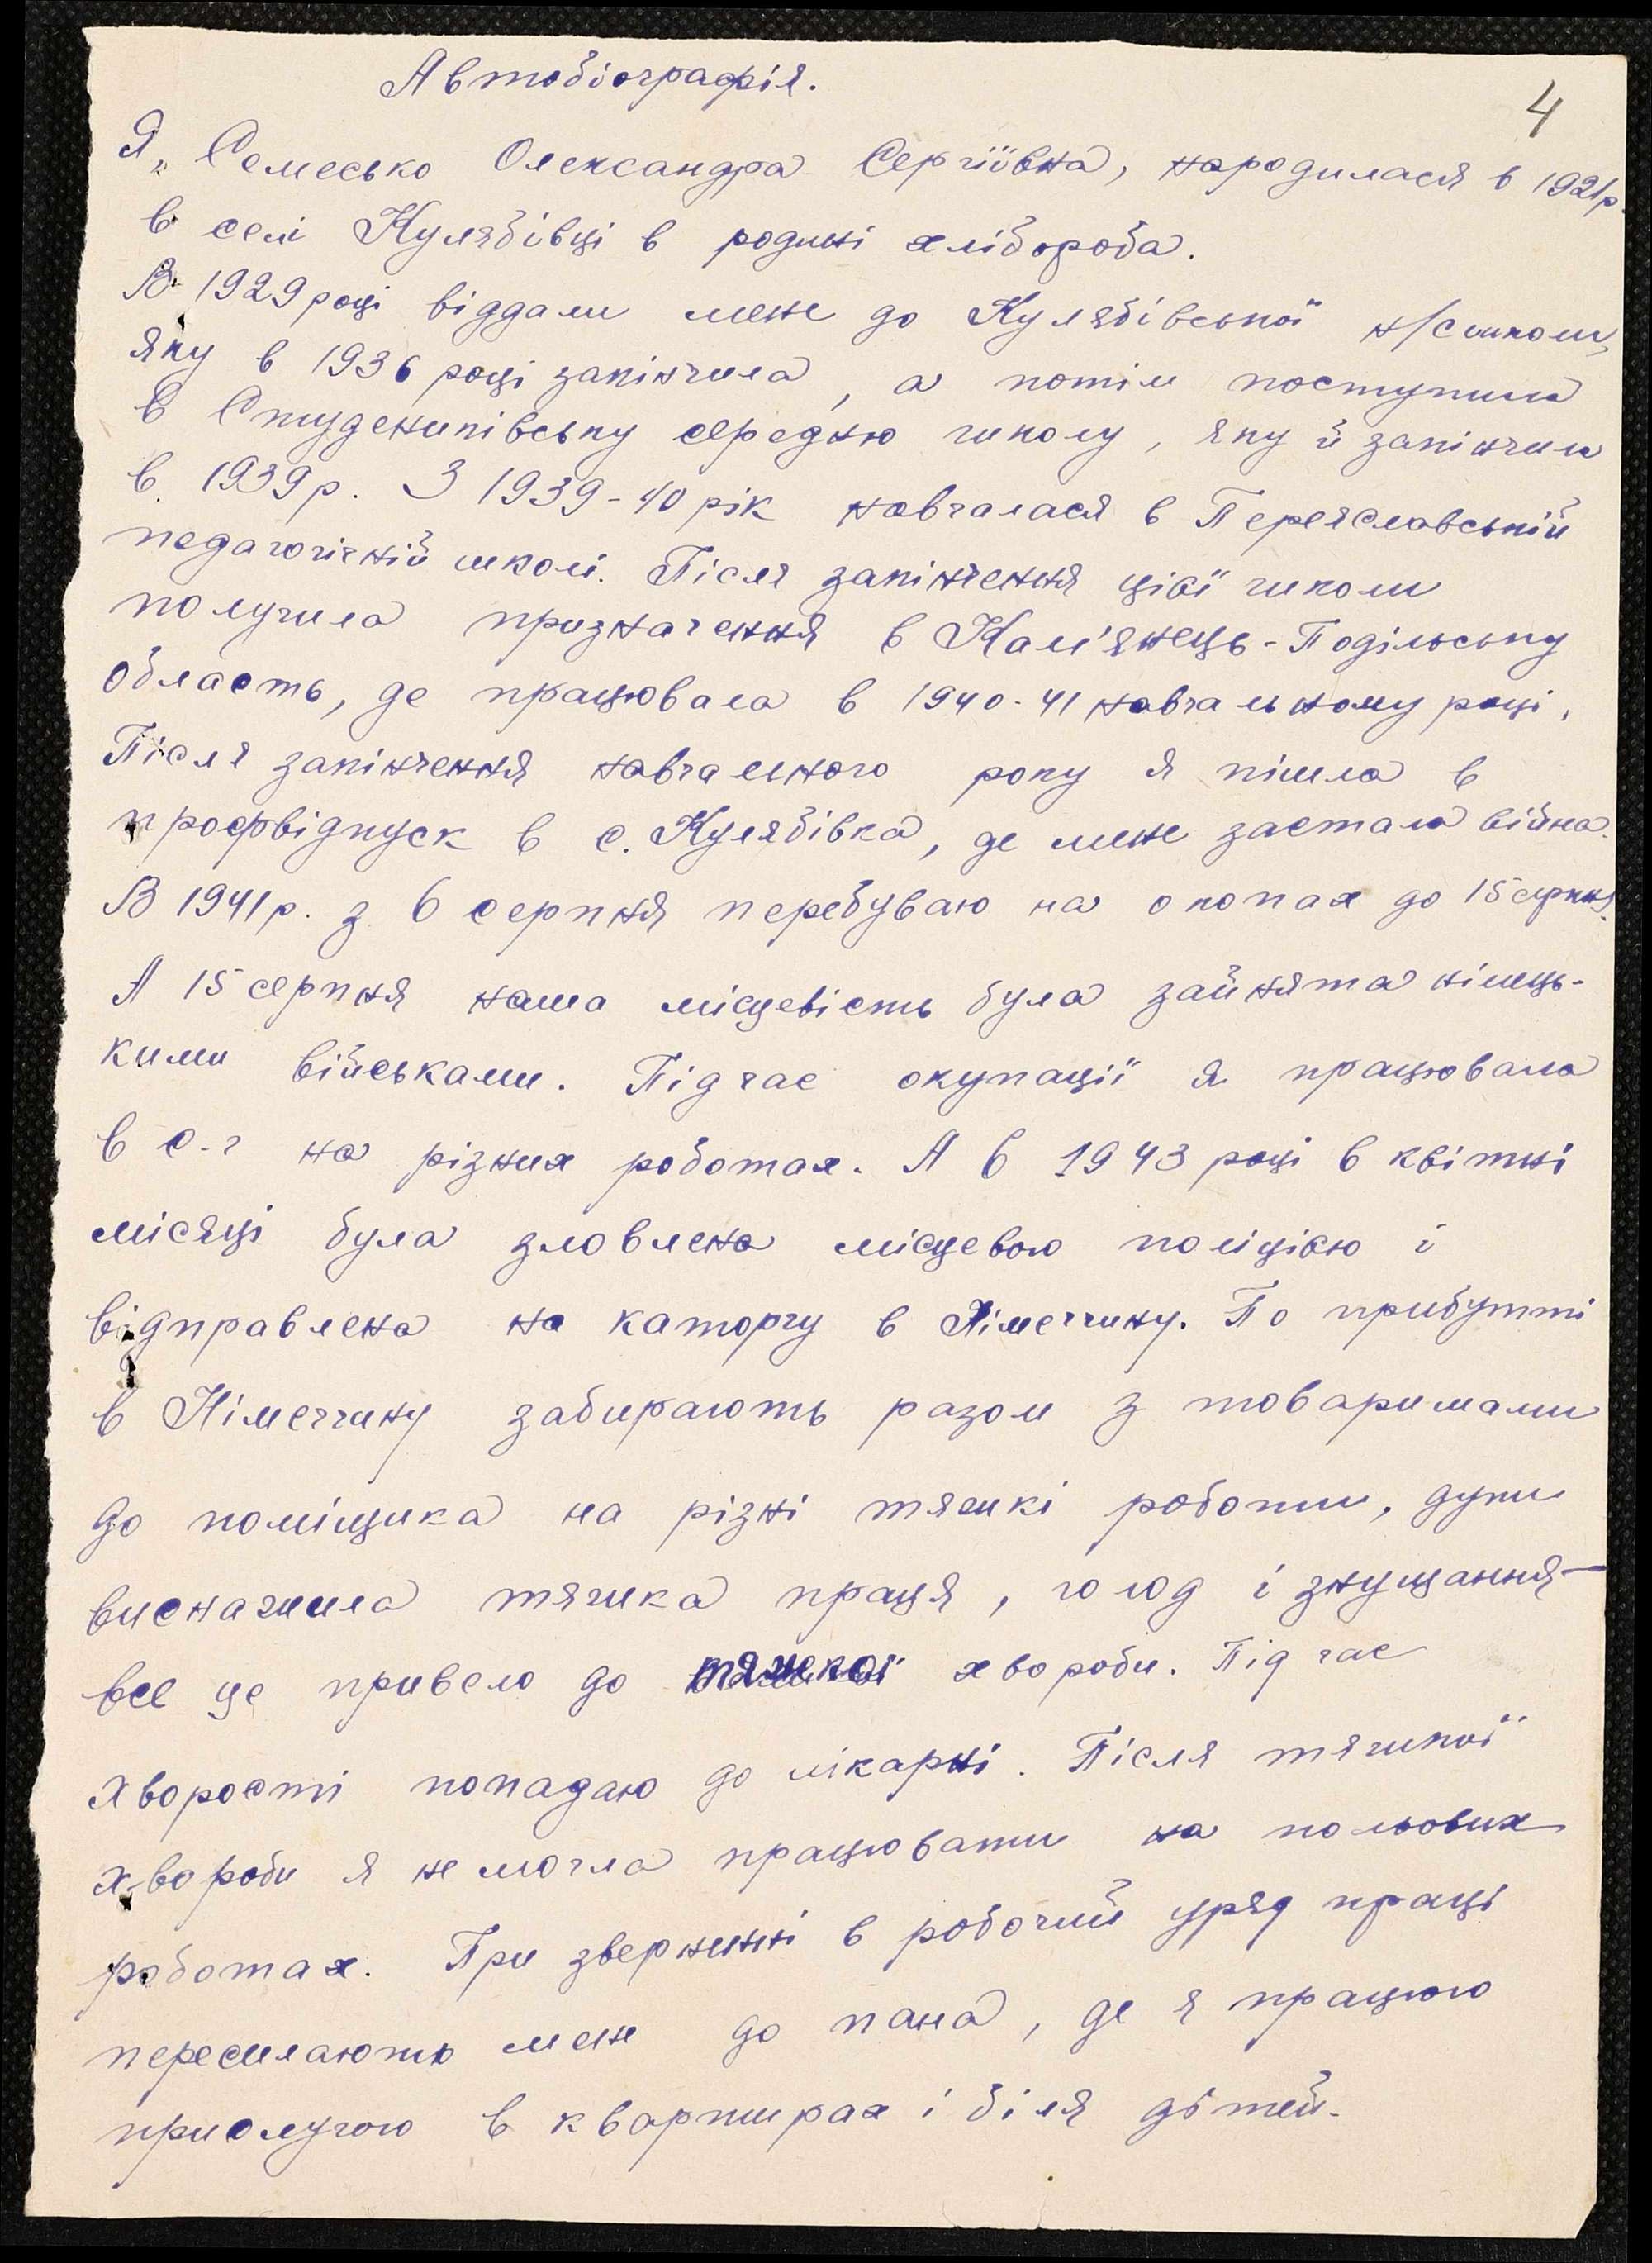 Автобіографія.
4
Я, Семесько Олександра Сергіївна, народилася в 1921р.
в селі Кулябівці в родині хлібороба.
В 1929 році віддали мене до Кулябівської н/с школи,
яку в 1936 році закінчила, а потім поступила
в Студениківську середню школу, яку й закінчила
в 1939р. З 1939-40 рік навчалася в Переяславській
педагогічній школі. Після закінчення цієї школи
получила призначення в Кам'янець-Подільську
область, де працювала в 1940-41 навчальному році.
Після закінчення навчального року я пішла в
профвідпуск в с. Кулябівка, де мене застала війна.
В 1941р. з 6 серпня перебуваю на окопах до 15 серпня.
А 15 серпня наша місцевість була зайнята німець-
кими військами. Під час окупації я працювала
в с-г на різних роботах. А в 1943 році в квітні
місяці була зловлена місцевою поліцією і
відправлена на каторгу в Німеччину. По прибутті
в Німеччину забирають разом з товаришами
до поміщика на різні тяжкі роботи, дуже
виснажила тяжка праця, голод і знущання—
все це привело до тяжкої хвороби. Під час
хворості попадаю до лікарні. Після тяжкої
хвороби я не могла працювати на польових
роботах. При зверненні в робочий уряд праці
пересилають мене до пана, де я працюю
прислугою в квартирах і біля дітей.